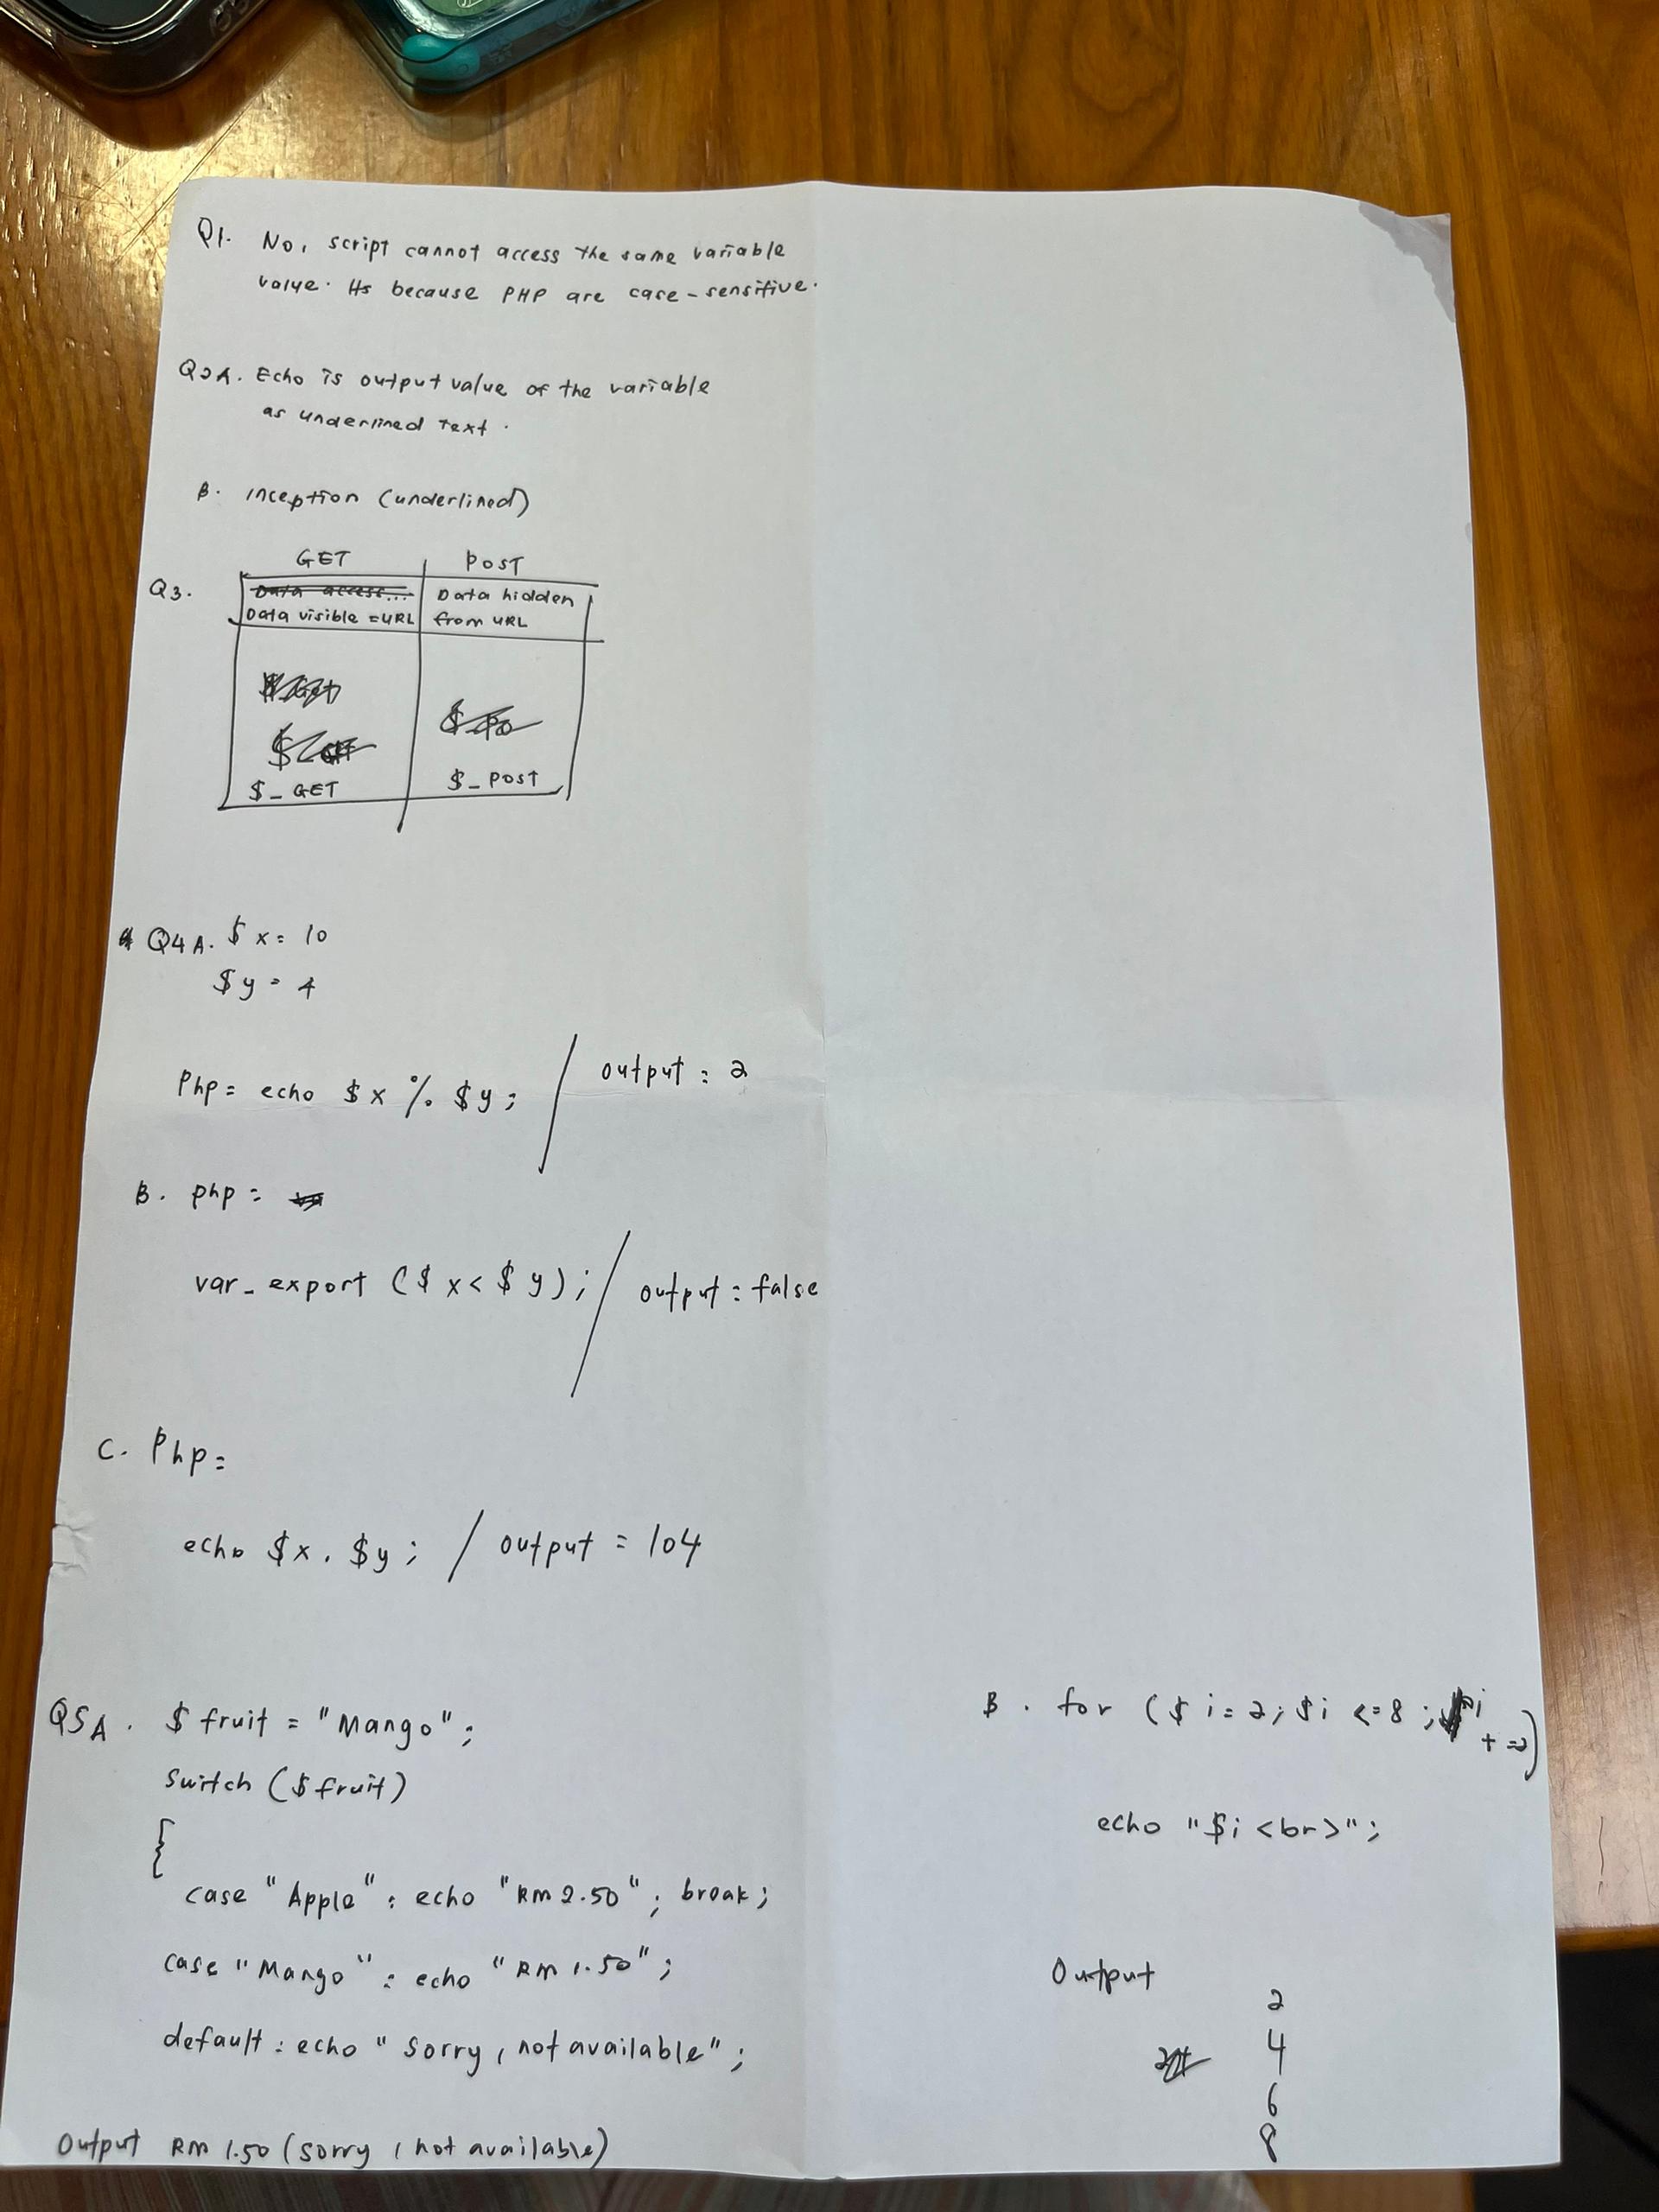 Q1. No, script cannot access the same variable
value. Its because PHP are case-sensitive.
Q2A. Echo is output value of the variable
as underlined text.
B. inception (underlined)
GET POST
Q3.
Data access...
Data visible = URL
Data hidden
from URL
$_GET
$_POST
Q4A. $x = 10
$y = 4
Php = echo $x % $y; / output = 2
B. php =
var_export ($x < $y); / output = false
C. Php =
echo $x . $y; / output = 104
Q5A. $fruit = "Mango";
switch ($fruit)
{
case "Apple" : echo "RM 2.50"; break;
case "Mango" : echo "RM 1.50";
default : echo "Sorry, not available";
Output RM 1.50 (sorry, not available)
B. for ($i = 2; $i <= 8; i
+=2)
echo "$i <br>";
Output
2
4
6
8